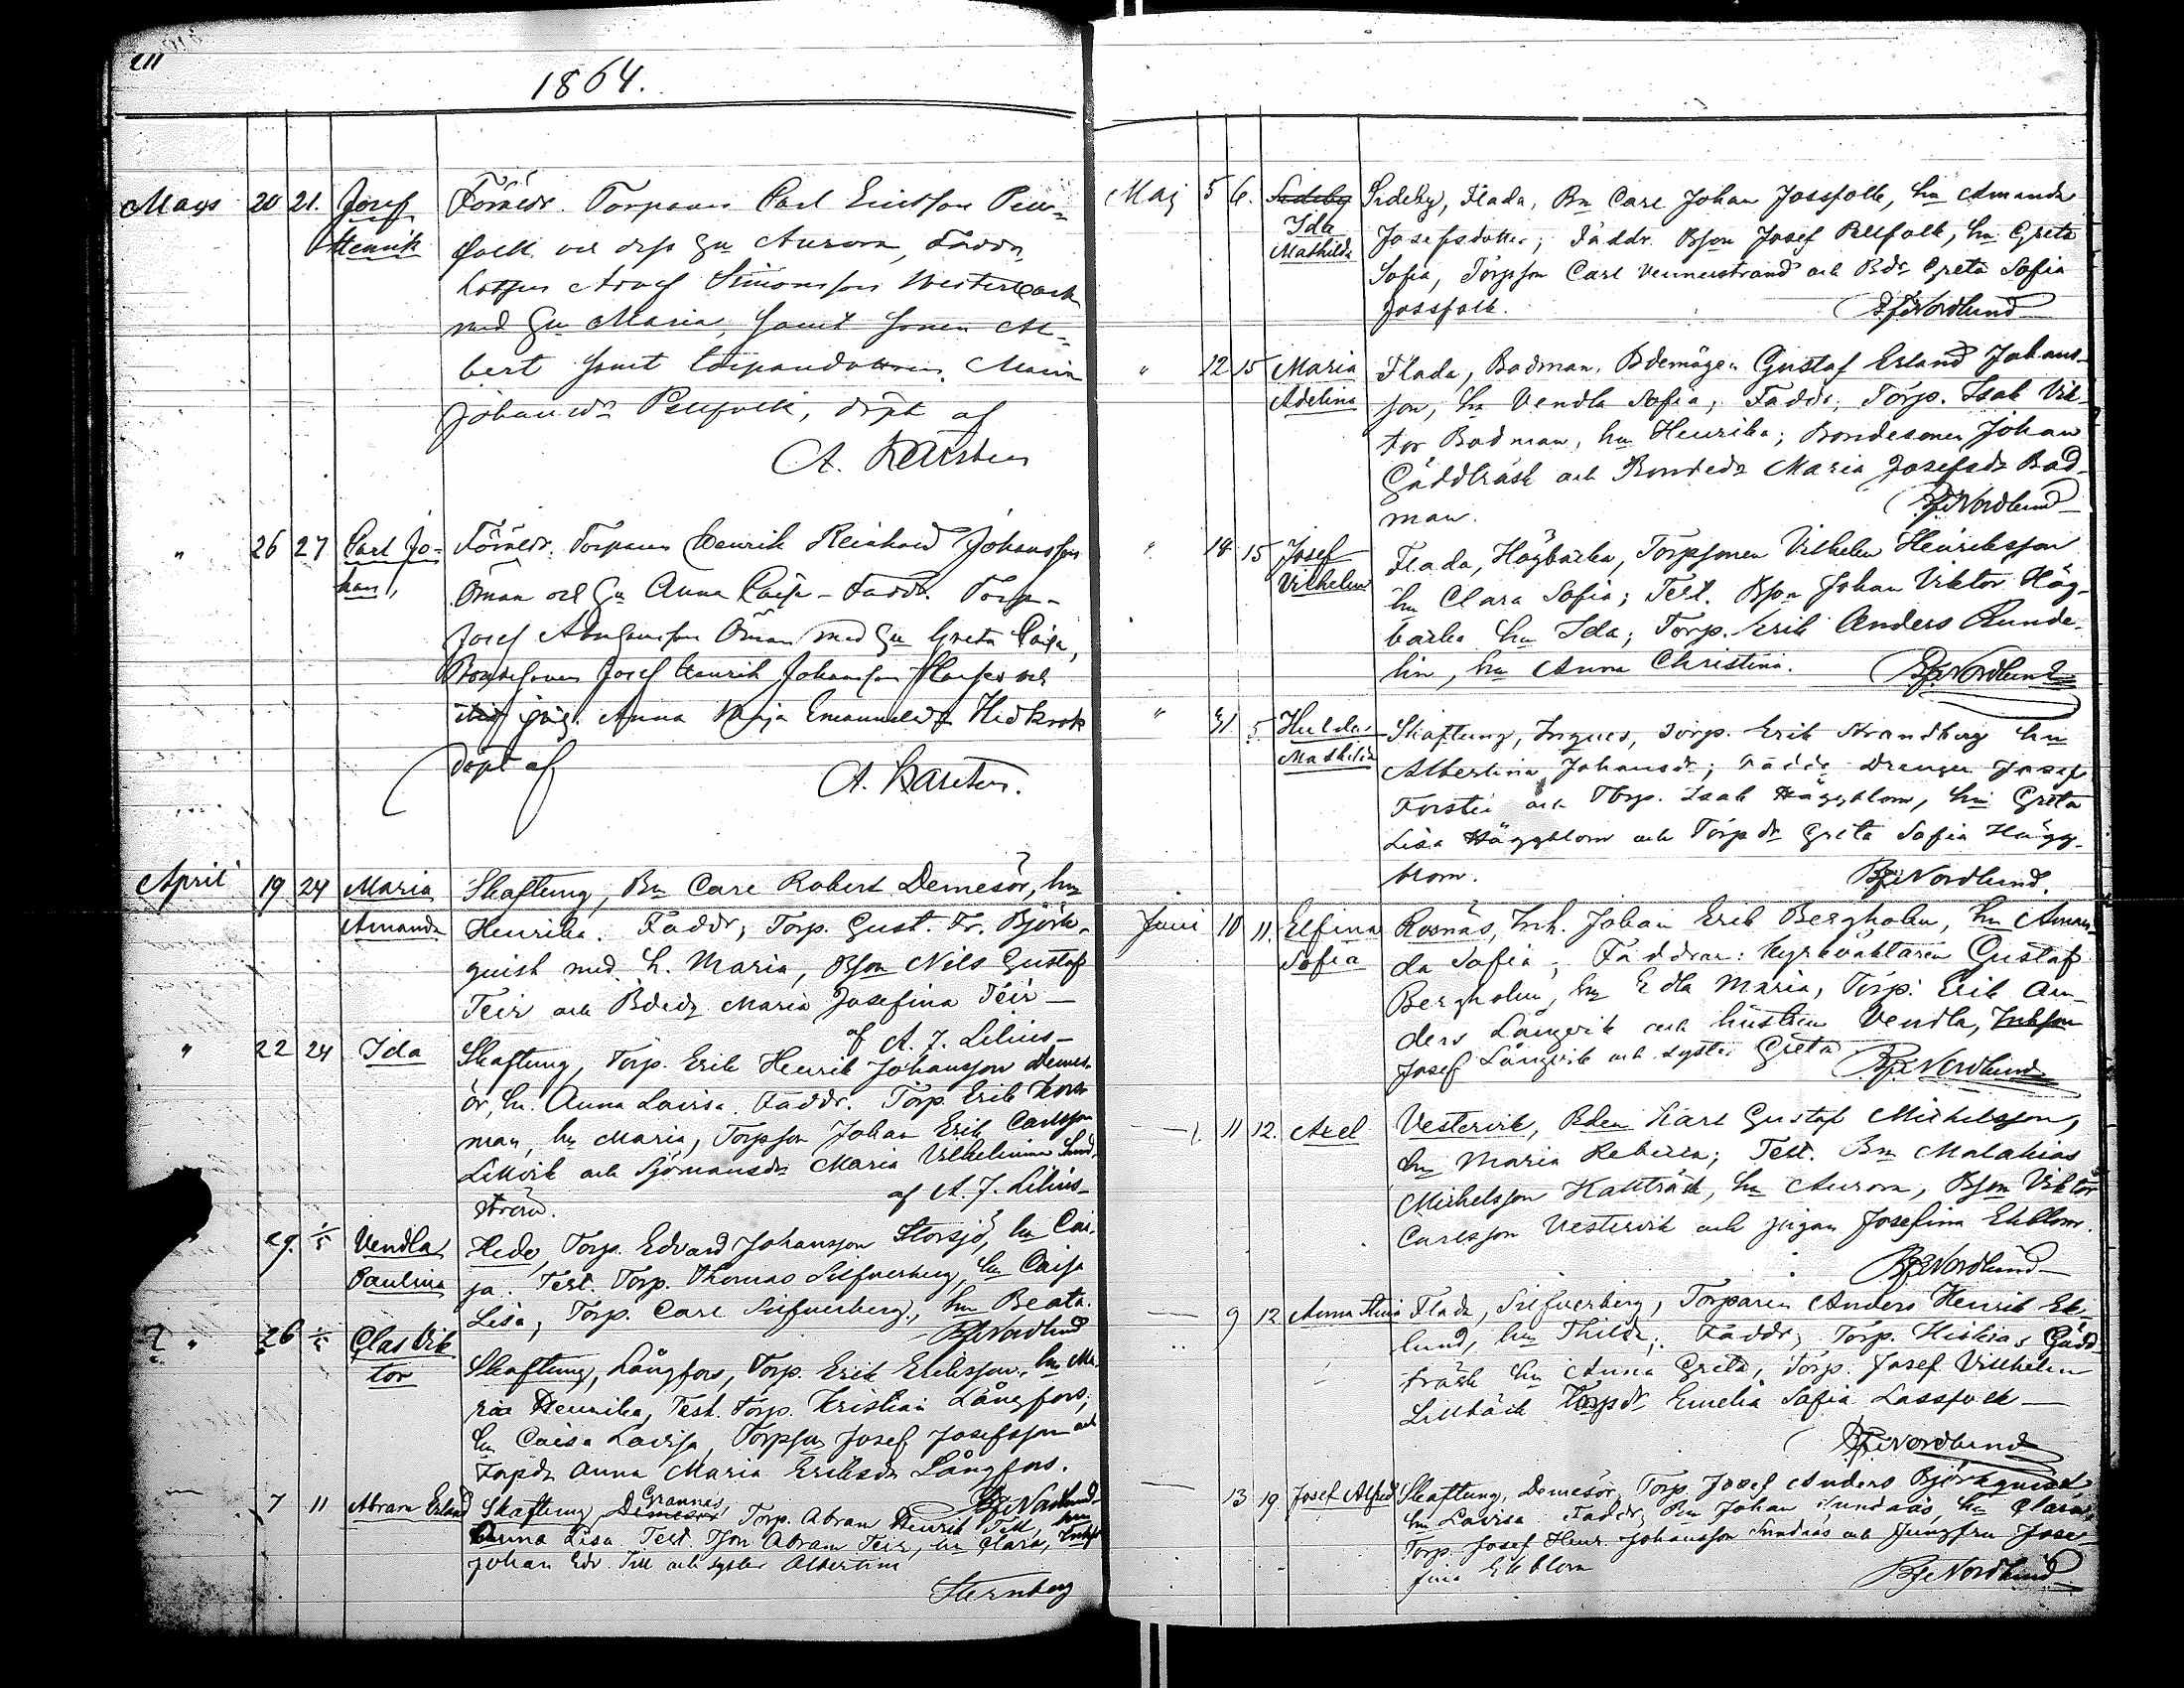 1864.
Mars 20 21. Josef Föräldr. Torparen Carl Ericsson Pell-
Henrik folk och dess hu Aurora, Faddr,
Adolf Simonsson Westerback
med hu Maria, samt sonen Al-
bert samt torparedottren Maria
Johansdr Pellfolk, döpt af
A. Karsten
" 26 27 Carl Jo- Föräldr. Torparen Henrik Reinhold Johansson
han, Öman och hu Anna Caisa - Faddr. Torp-
Josef Öman med hu Greta Caisa,
Bondesonen Josef Henrik Johansson och
pig. Anna Maja Emanuelsdr Hedkrok
döpt af
A. Karsten.
April 19 24 Maria Skaftung, Bn Carl Robert Demesör, hu
Amanda Henrika. Faddr, Torp. Gust. Fr. Björk-
quist med h. Maria, Bson Nils Gustaf
Teir och Bdedr Maria Josefina Teir —
af A. J. Lilius —
" 22 24 Ida Skaftung, Torp. Erik Henrik Johansson Demes-
ör, hu. Anna Lovisa. Faddr. Torp. Erik Kors-
man, hu Maria, Torpson Johan Erik Carlsson
Lillvik och Sjömansdr Maria Vilhelmina Sund-
ström. af A. J. Lilius —
29. 1/5 Vendla Hede, Torp. Edvard Johansson Storsjö, hu Cai-
Paulina ja. Test. Torp. Thomas Silfverberg, hu Caisa
Lisa, Torp. Carl Silfverberg, hu Beata.
Nordlund
" 26 1/5 Clas Vik Skaftung, Långfors, Torp. Erik Eriksson, hu Ma-
tor ria Henrika, Test. Torp. Kristian Långfors,
hu Caisa Lovisa, Torpson Josef Josefsson och
Torpdr Anna Maria Eriksdr Långfors.
Nordlund
— 7 11 Abram Erland Skaftung, Demesör Grannas, Torp. Abram Henrik Till, hu
Anna Lisa Test. Tson Abram Teir, hu Clara, Inhs
Johan Edv. Till och syster Albertina
Sternberg
Maj 5 6. Sideby Sideby, Flada, Bn Carl Johan Jossfolk, hu Amanda
Ida Josefsdotter; Faddr. Bson Josef Pellfolk, hu Greta
Mathilda Sofia, Torpson Carl Vennerstrand och Bdr Greta Sofia
Jossfolk. Nordlund
" 12 15 Maria Flada, Badman, Bdemågen Gustaf Erland Johans-
Adelina son, hu Vendla Sofia; Faddr, Torp. Isak Vik-
tor Badman, hu Henrika; Bondesonen Johan
Gäddträsk och Bondedr Maria Josefsdr Bad-
man. Nordlund
" 14 15 Josef Flada, Högbacka, Torpsonen Vilhelm Henriksson
Vilhelm hu Clara Sofia; Test. Bson Johan Viktor Hög-
backa hu Ida; Torp. Erik Anders Runde-
lin, hu Anna Christina. Nordlund
" 31 5 Hulda Skaftung, Ingves, Torp. Erik Strandberg hu
Mathilda Albertina Johansdr; Faddr Drengen Josef
Forstén och Torp. Isak Häggblom, hu Greta
Lisa Häggblom och Torpdr Greta Sofia Hägg-
blom. Nordlund.
Juni 10 11. Elfina Rosnäs, Inh. Johan Erik Bergholm, hu Aman-
Sofia da Sofia; Faddrar: Kyrkvaktaren Gustaf
Bergholm, hu Edla Maria, Torp. Erik An-
ders Långvik och hustrun Vendla, Inhson
Josef Långvik och syster Greta Nordlund
— 11 12. Axel Vestervik, Bden Karl Gustaf Michelsson,
hu Maria Rebecka; Test. Bn Malakias
Michelsson Kallträsk, hu Aurora, Bson Viktor
Carlsson Vestervik och pigan Josefina Ekblom.
Nordlund —
— 9 12 Anna Stina Flada, Silfverberg, Torparen Anders Henrik Ek-
lund, hu Thilda; Faddr, Torp. Hiskias Gädd-
träsk hu Anna Greta, Torp. Josef Vilhelm
Lillbäck Torpdr Emelia Sofia Lassfolk —
Nordlund
— 13 19 Josef Alfred Skaftung, Demesör, Torp. Josef Anders Björkqvist
hu Lovisa. Faddr, Bn Johan Sundnäs, hu Clara,
Torp. Josef Henr. Johansson Sundnäs och Jungfru Jose-
fina Ekblom Nordlund